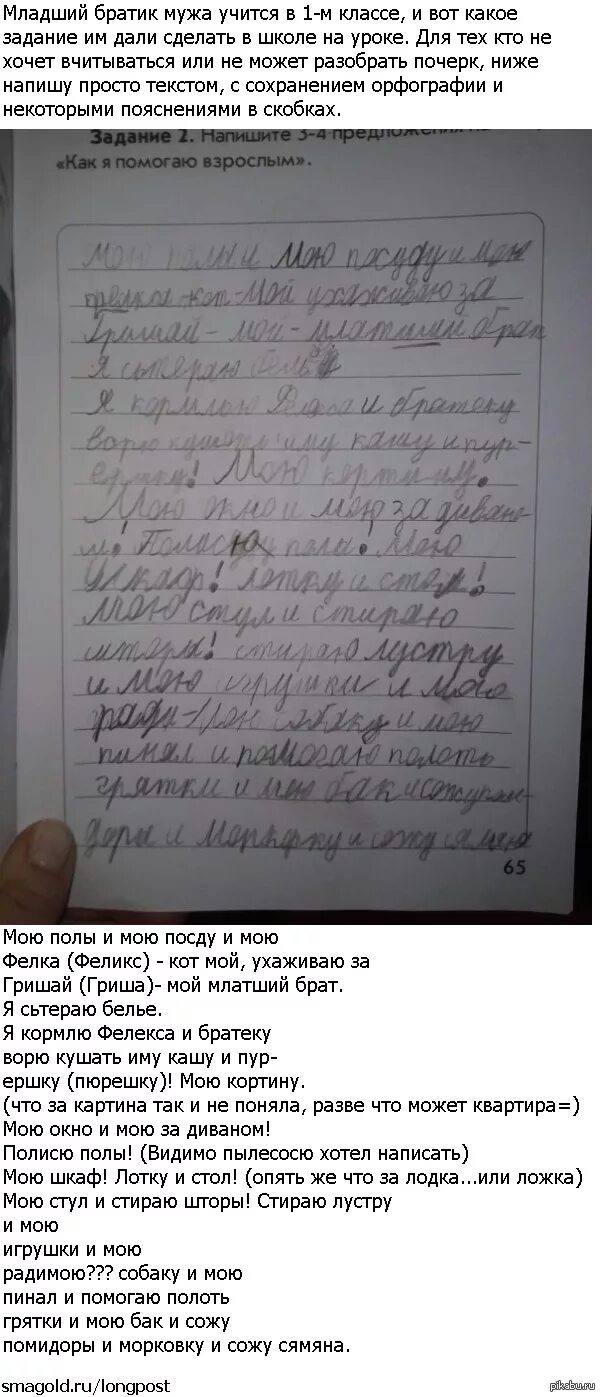 Младший братик мужа учится в 1-м классе, и вот какое
задание им дали сделать в школе на уроке. Для тех кто не
хочет вчитываться или не может разобрать почерк, ниже
напишу просто текстом, с сохранением орфографии и
некоторыми пояснениями в скобках.
Задание 2. Напишите 3-4 предложения
«Как я помогаю взрослым».
Мою полы и мою посуду и мою
кот-мой ухаживаю за
Гришай-мой-млатший брат
Я сьтераю бель
Я кормлю и братеку
ворю кушать иму кашу и пур-
ершку! Мою кортину.
Мою окно и мою за дивано-
м! Полисю полы! Мою
шкаф! лотку и стол!
Мою стул и стираю
шторы! стираю лустру
и мою игрушки и мою
собаку и мою
пинал и помогаю полоть
грятки и мою бак и сожу
и Моркорку и сожу
65
Мою полы и мою посду и мою
Фелка (Феликс) - кот мой, ухаживаю за
Гришай (Гриша)- мой млатший брат.
Я сьтераю белье.
Я кормлю Фелекса и братеку
ворю кушать иму кашу и пур-
ершку (пюрешку)! Мою кортину.
(что за картина так и не поняла, разве что может квартира=)
Мою окно и мою за диваном!
Полисю полы! (Видимо пылесосю хотел написать)
Мою шкаф! Лотку и стол! (опять же что за лодка...или ложка)
Мою стул и стираю шторы! Стираю лустру
и мою
игрушки и мою
радимою??? собаку и мою
пинал и помогаю полоть
грятки и мою бак и сожу
помидоры и морковку и сожу сямяна.
smagold.ru/longpost
pikabu.ru